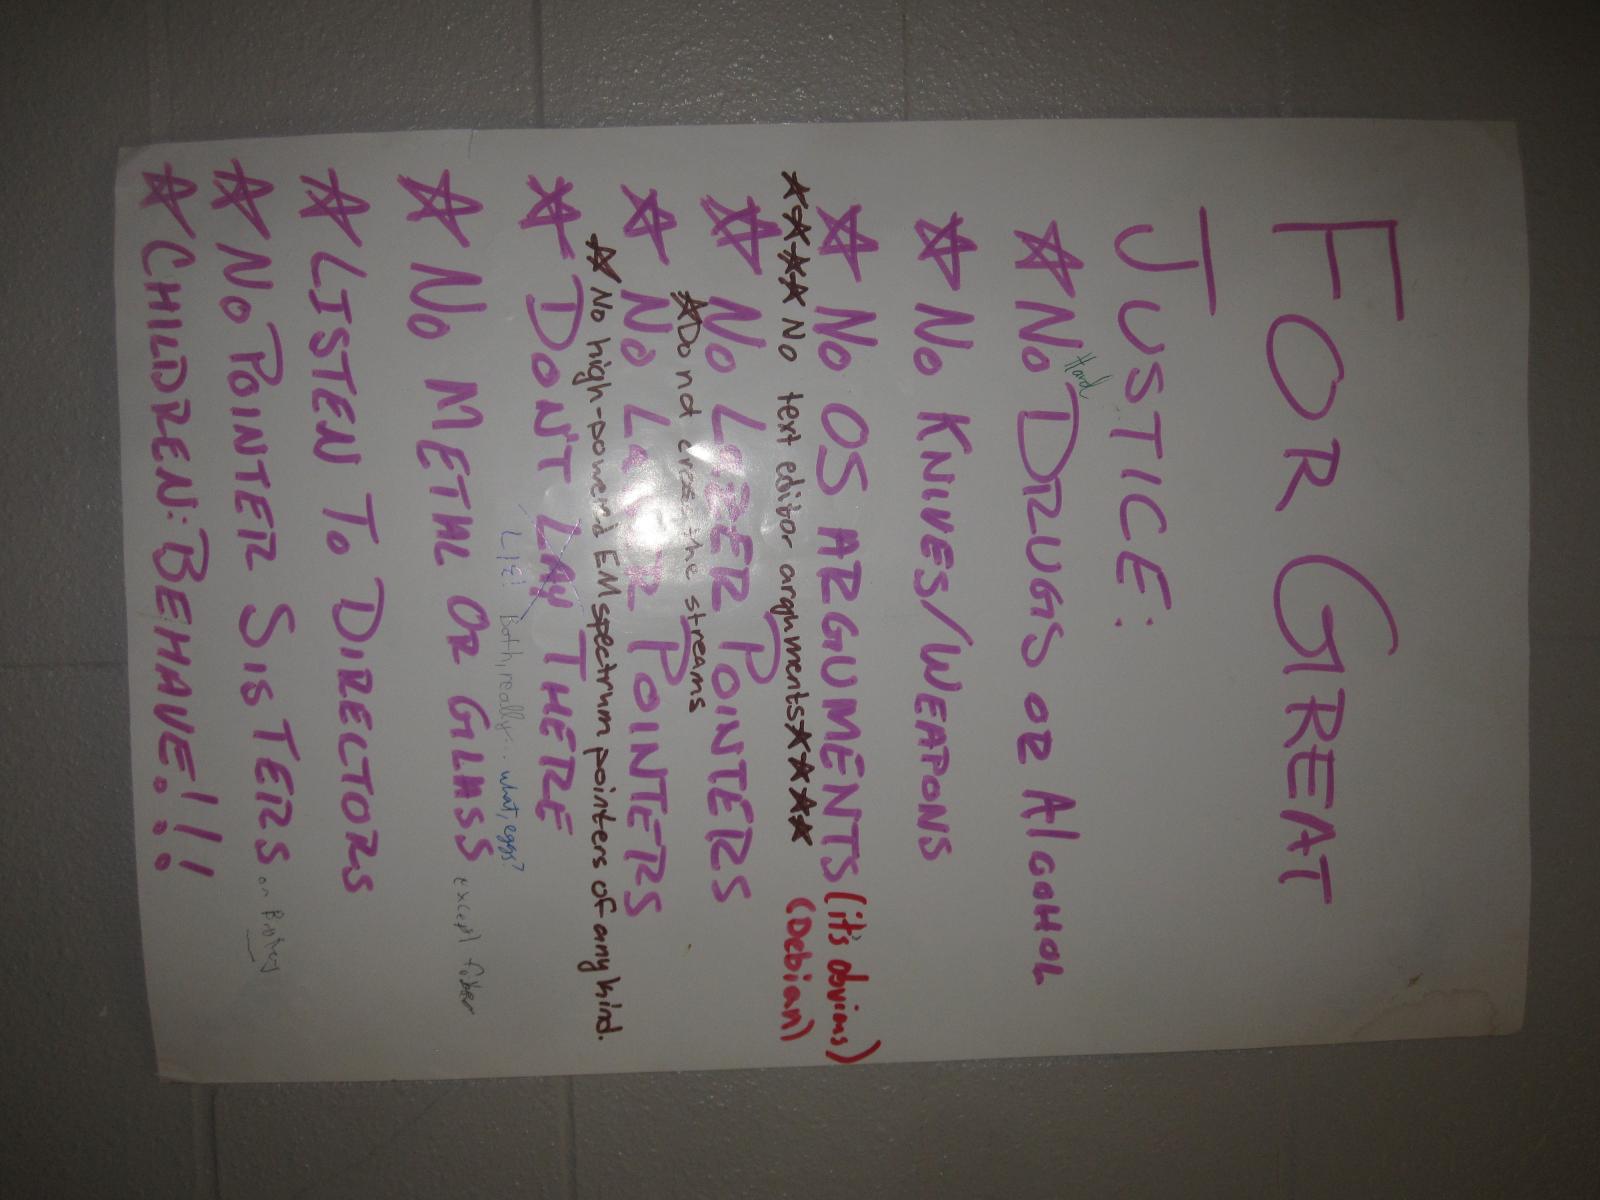 FOR GREAT
JUSTICE:
☆ NO Hard DRUGS OR AlCOHOL
☆ NO KNIVES/WEAPONS
☆ NO OS ARGUMENTS (it's obvious)
☆☆☆☆ No text editor arguments☆☆☆☆ (Debian)
☆ NO LAZER POINTERS
☆Do not cross the streams
☆ NO LAZER POINTERS
☆ No high-powered EM spectrum pointers of any kind.
☆ DONT LAY THERE
LIE! Both, really... what, eggs?
☆ NO METAL OR GLASS except
☆ LISTEN TO DIRECTORS
☆ NO POINTER SISTERS
☆ CHILDREN: BEHAVE!!!